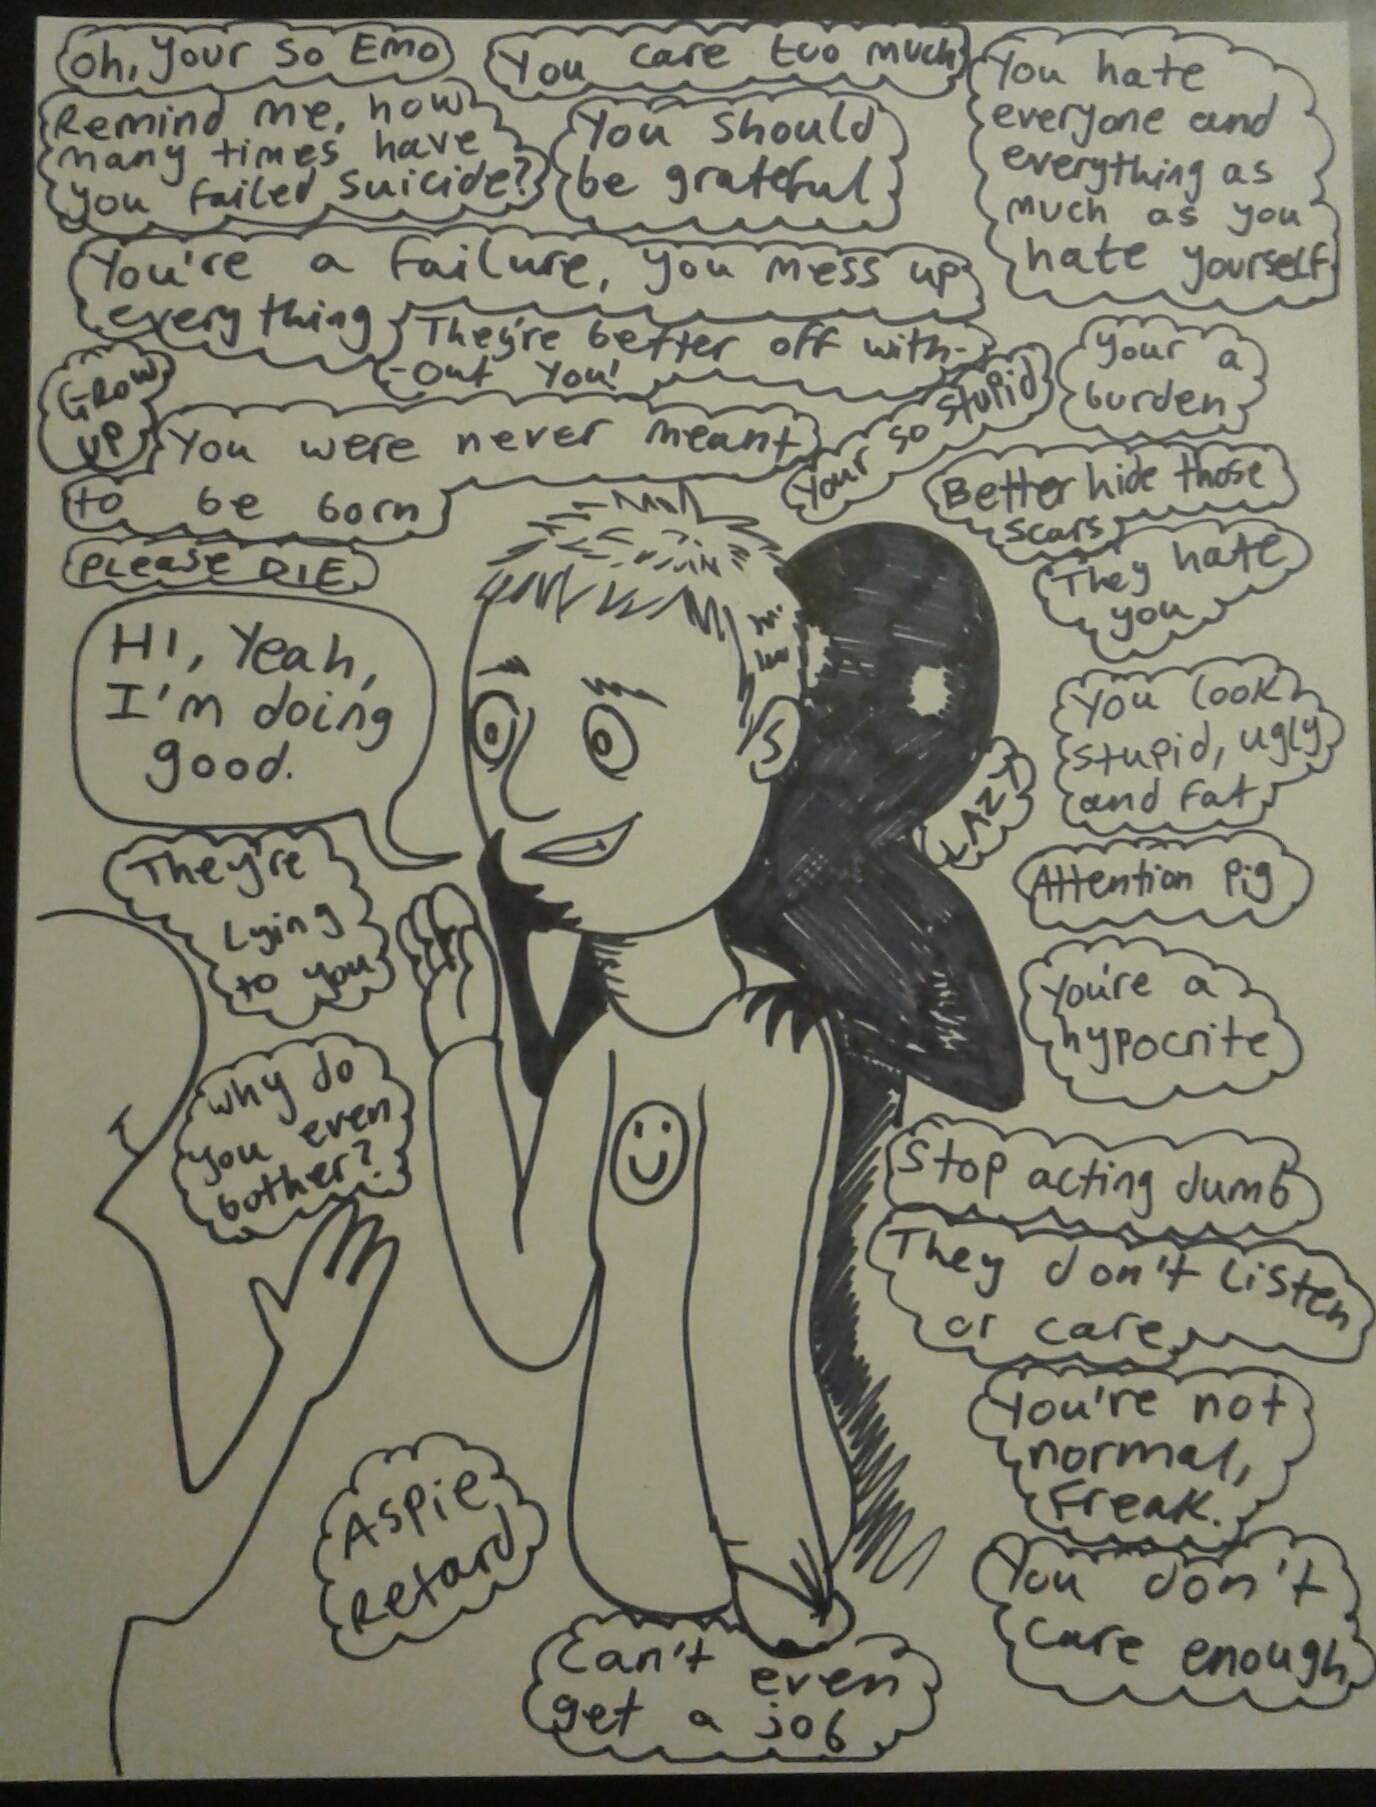 Oh, your so Emo
You care too much
You hate
everyone and
everything as
much as you
hate yourself
Remind me, how
many times have
you failed suicide?
You should
be grateful
You're a failure, you mess up
everything
They're better off with-
-out you!
Your a
burden
Grow
up
You were never meant
to be born
Your so stupid
Better hide those
scars
PLEASE DIE
They hate
you
HI, Yeah,
I'm doing
good.
You look
stupid, ugly
and fat
LAZY
They're
Lying
to you
Attention Pig
You're a
hypocrite
Why do
you even
bother?
Stop acting dumb
They don't Listen
or care
You're not
normal,
Freak.
Aspie
Retard
You don't
care enough
Can't even
get a job